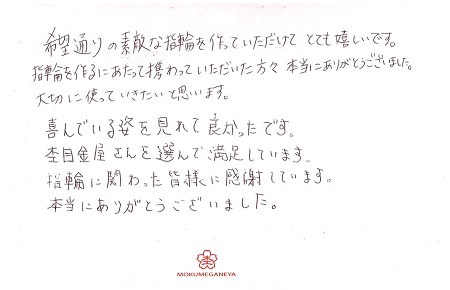 希望通りの素敵な指輪を作っていただけて とても嬉しいです。
指輪を作るにあたって携わっていただいた方々 本当にありがとうございました。
大切に使っていきたいと思います。
喜んでいる姿を見れて良かったです。
杢目金屋さんを選んで満足しています。
指輪に関わった皆様に感謝しています。
本当にありがとうございました。
MOKUMEGANEYA